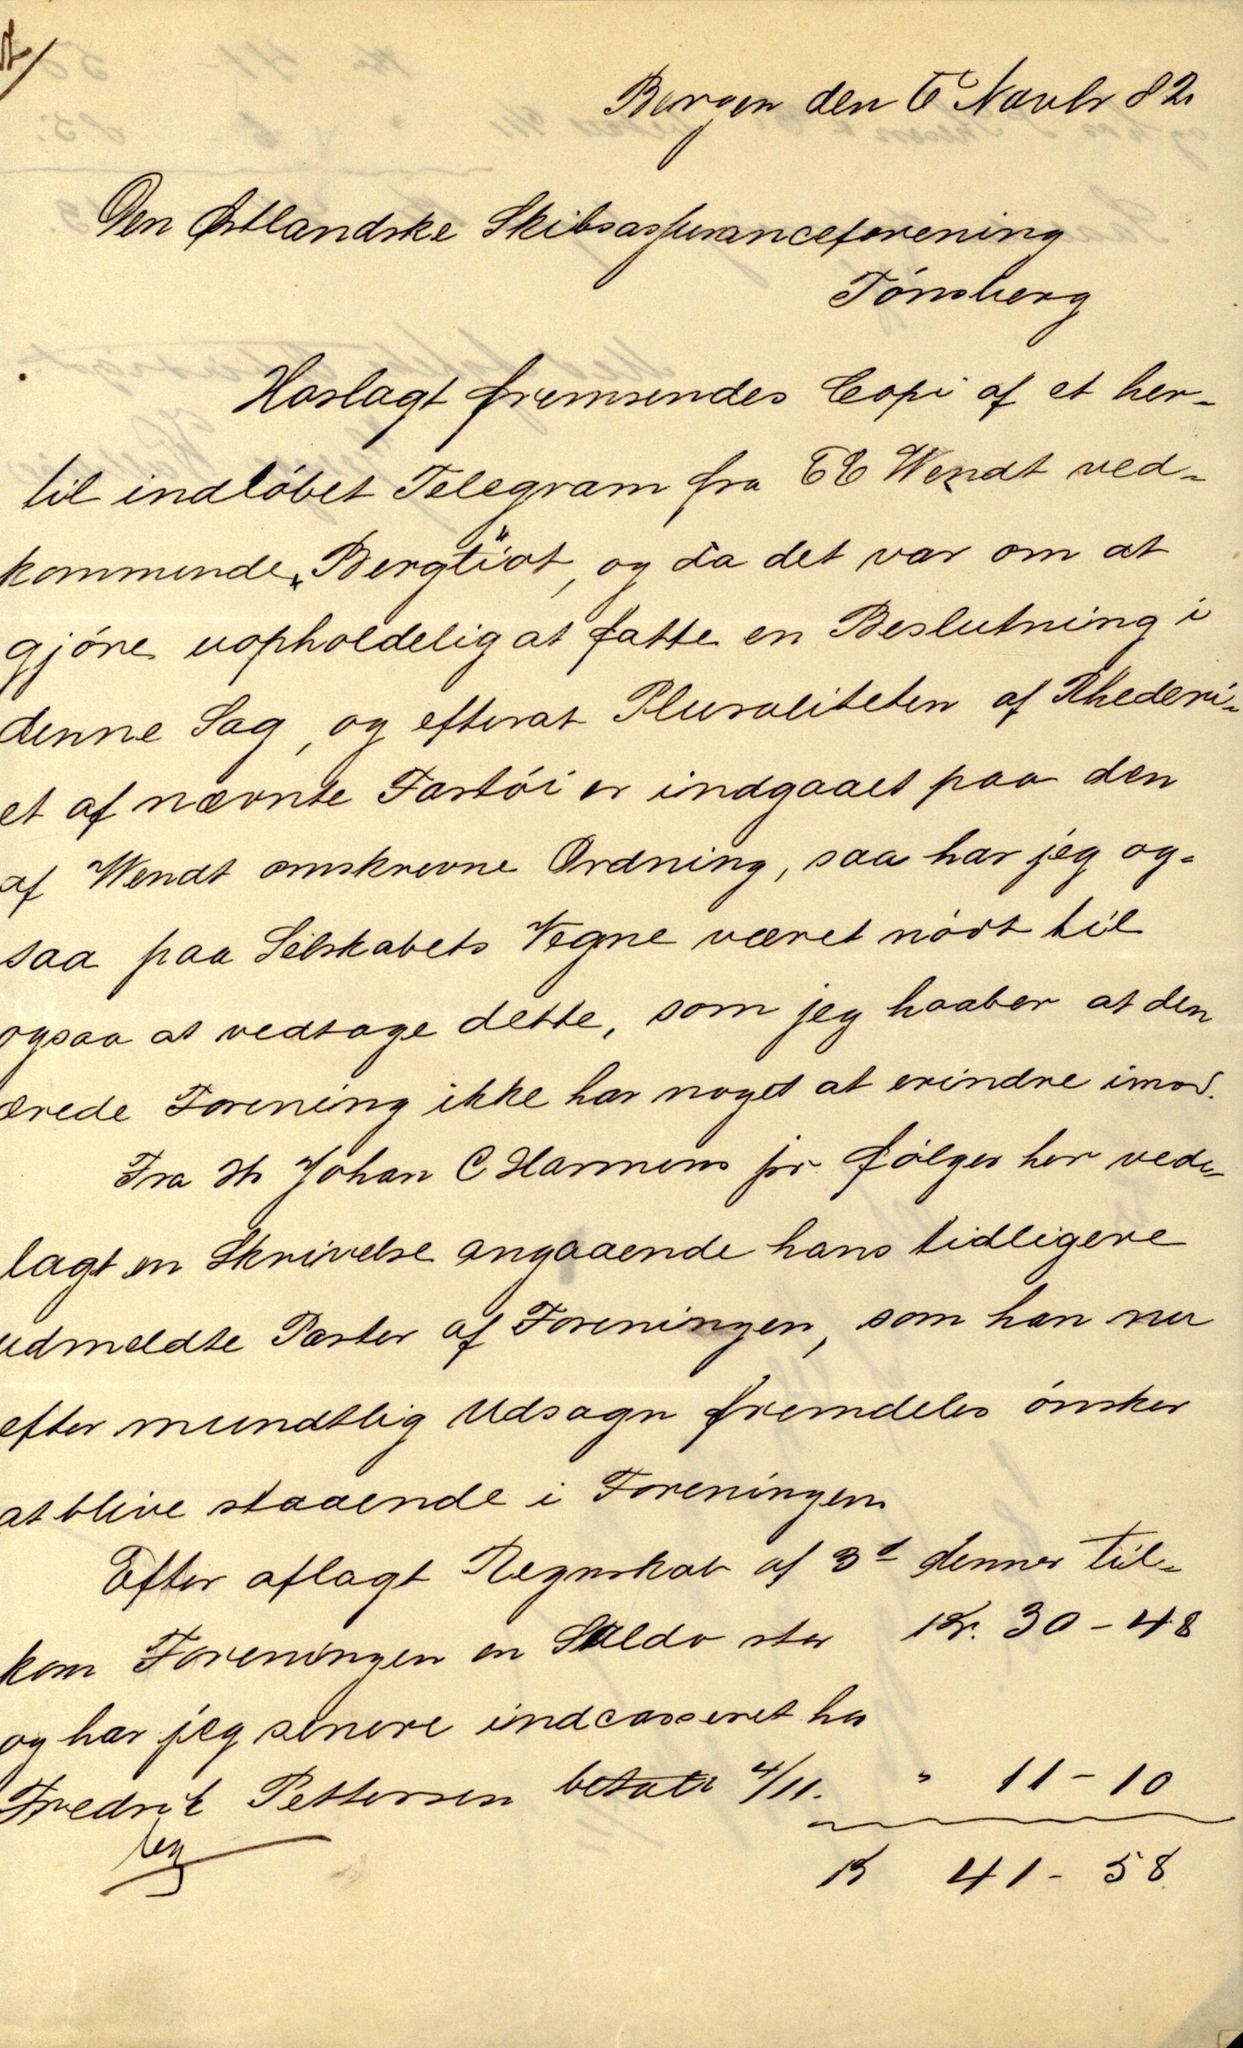 Bergen den 6 Novbr 82
Den Østlandske Skibsassuranceforening
Tönsberg
Hoslagt fremsendes Copi af et her-
til indlöbet Telegram fra E E Wendt ved-
kommende "Bergliot", og da det var om at
gjöre uopholdelig at fatte en Beslutning i
denne Sag, og efterat Pluraliteten af Rhederi-
et af nævnte Fartöi er indgaaet paa den
af Wendt omskrevne Ordning, saa har jeg og-
saa paa Selskabets Vegne været nödt til
ogsaa at vedtage dette, som jeg haaber at den
ærede Forening ikke har noget at erindre imod.
Fra Hr Johan C Harmens jr. fölger her ved-
lagt en Skrivelse angaaende hans tidligere
udmeldte Parter af Foreningen, som han nu
efter mundtlig Udsagn fremdeles önsker
at blive staaende i Foreningen
Efter aflagt Regnskab af 3d dennes til-
kom Foreningen en Saldo stor Kr. 30-48
og har jeg senere indcasseret hos
Fredrik Pettersen betalt 4/11. " 11-10
Kr 41-58